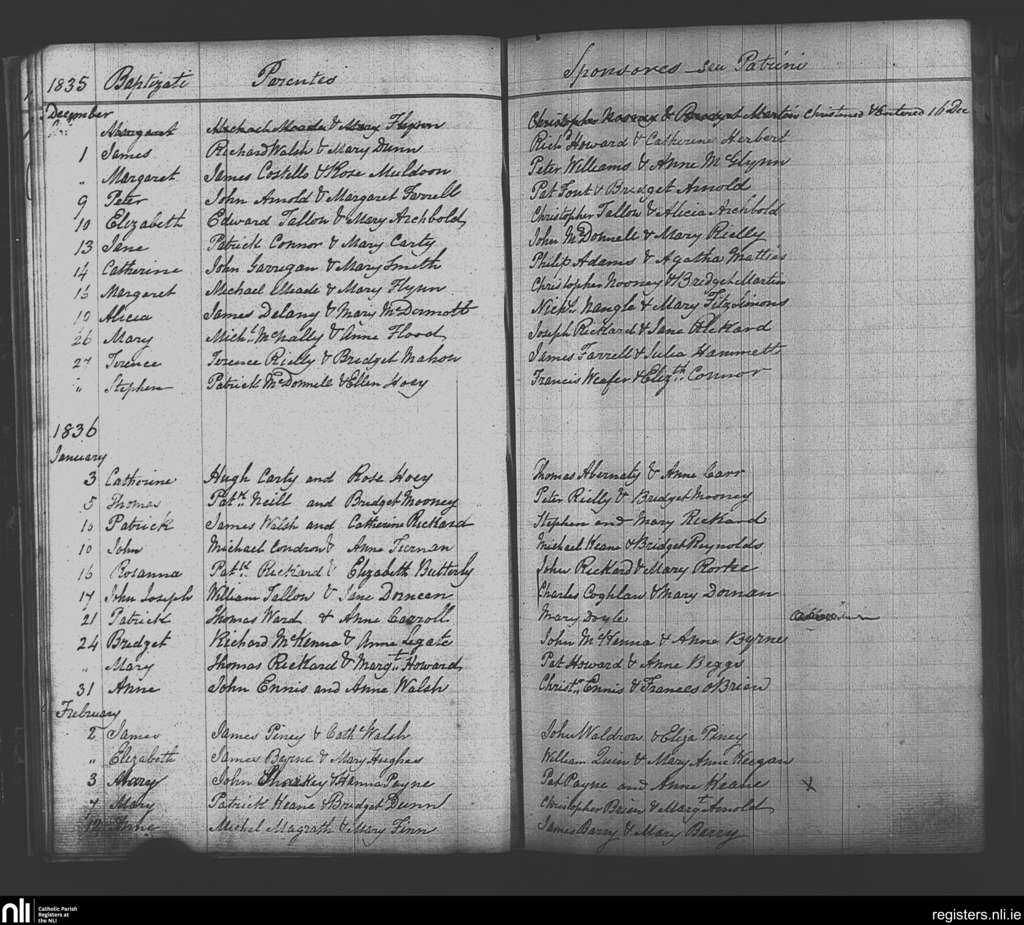 1835 Baptizati Parentes Sponsores seu Patrini
December
Margaret Michael Meade & Mary Flynn Christopher Nooney & Bridget Martin Christened & Entered 16 Dec
1 James Richard Walsh & Mary Dunn Richd Howard & Catherine Herbert
" Margaret James Costello & Rose Muldoon Peter Williams & Anne McGlynn
9 Peter John Arnold & Margaret Farrell Pat Font & Bridget Arnold
10 Elizabeth Edward Tallon & Mary Archbold Christopher Tallon & Alicia Archbold
13 Jane Patrick Connor & Mary Carty John McDonnell & Mary Rielly
14 Catherine John Garrigan & Mary Smith Philip Adams & Agatha Matties
16 Margaret Michael Meade & Mary Flynn Christopher Nooney & Bridget Martin
19 Alicia James Delany & Mary McDermott Nichs Nangle & Mary FitzSimons
26 Mary Michl McNally & Anne Flood Joseph Rickard & Jane Rickard
27 Terence Terence Rielly & Bridget Mahon James Farrell & Julia Hammett
" Stephen Patrick McDonnell & Ellen Hoey Francis Weafer & Elizth Connor
1836
January
3 Catherine Hugh Carty and Rose Hoey Thomas Abernaty & Anne Carr
5 Thomas Patk Neill and Bridget Mooney Peter Rielly & Bridget Mooney
10 Patrick James Walsh and Catherine Rickard Stephen and Mary Rickard
10 John Michael Condron & Anne Tiernan Michael Keane & Bridget Reynolds
16 Rosanna Patk Rickard & Elizabeth Butterly John Rickard & Mary Rorke
17 John Joseph William Tallon & Jane Donncan Charles Coghlan & Mary Dornan
21 Patrick Thomas Ward & Anne Carroll Mary Doyle
24 Bridget Richard McKenna & Anne Legate John McKenna & Anne Byrne
" Mary Thomas Rickard & Margt Howard Pat Howard & Anne Beggs
31 Anne John Ennis and Anne Walsh Christr Ennis & Frances O'Brien
February
2 James James Piney & Cath Walsh John Waldron & Eliza Piney
" Elizabeth James Byrne & Mary Hughes William Quin & Mary Anne Keegan
3 Mary John Sharkey & Hanna Payne Pat Payne and Anne Keane X
7 Mary Patrick Keane & Bridget Dunn Christopher Brien & Margt Arnold
Anne Michel Magrath & Mary Finn James Barry & Mary Barry
nli Catholic Parish
Registers at
the NLI
registers.nli.ie